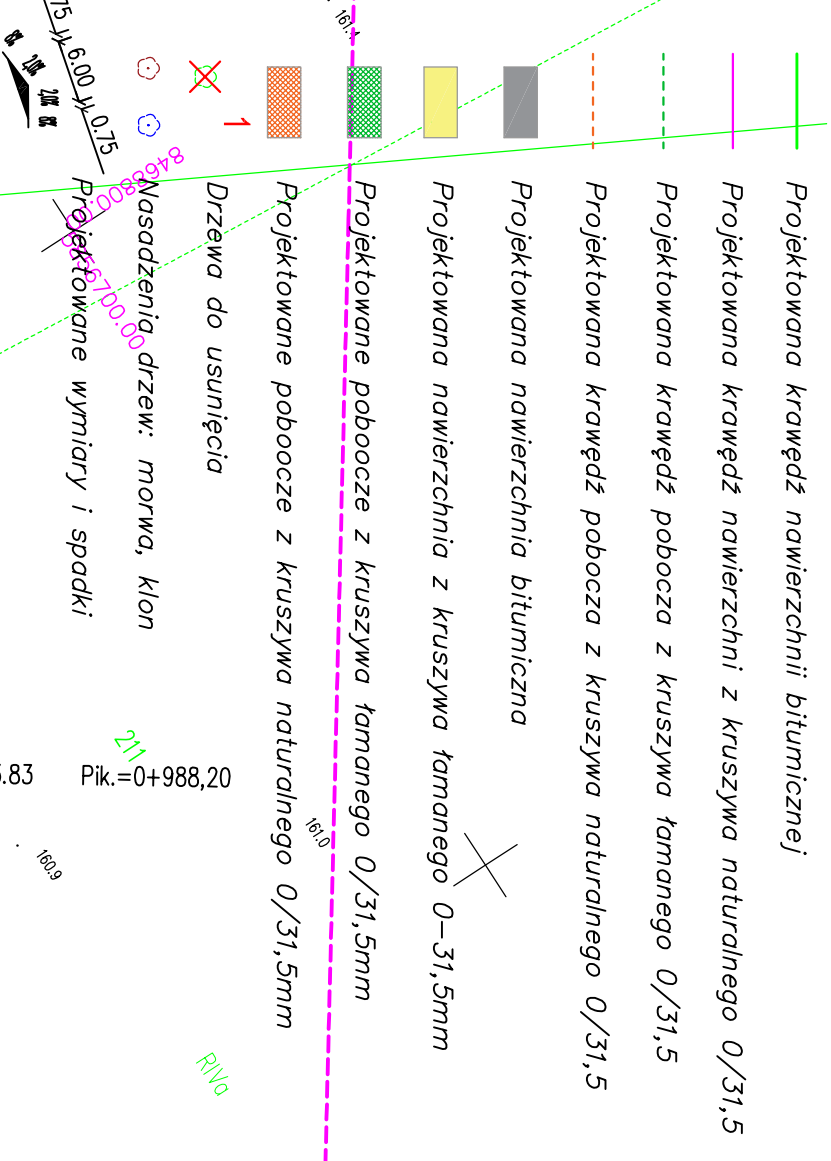 Projektowana krawędź nawierzchnii bitumicznej
Projektowana krawędź nawierzchni z kruszywa naturalnego 0/31,5
Projektowana krawędź pobocza z kruszywa łamanego 0/31,5
Projektowana krawędź pobocza z kruszywa naturalnego 0/31,5
Projektowana nawierzchnia bitumiczna
Projektowana nawierzchnia z kruszywa łamanego 0-31,5mm
Projektowane poboocze z kruszywa łamanego 0/31,5mm
Projektowane poboocze z kruszywa naturalnego 0/31,5mm
1
Drzewa do usunięcia
Nasadzenia drzew: morwa, klon
Projektowane wymiary i spadki
75 6.00 0.75
8% 2,0% 2,0% 8%
161.4
161.0
160.9
211
RIVa
.83
Pik.=0+988,20